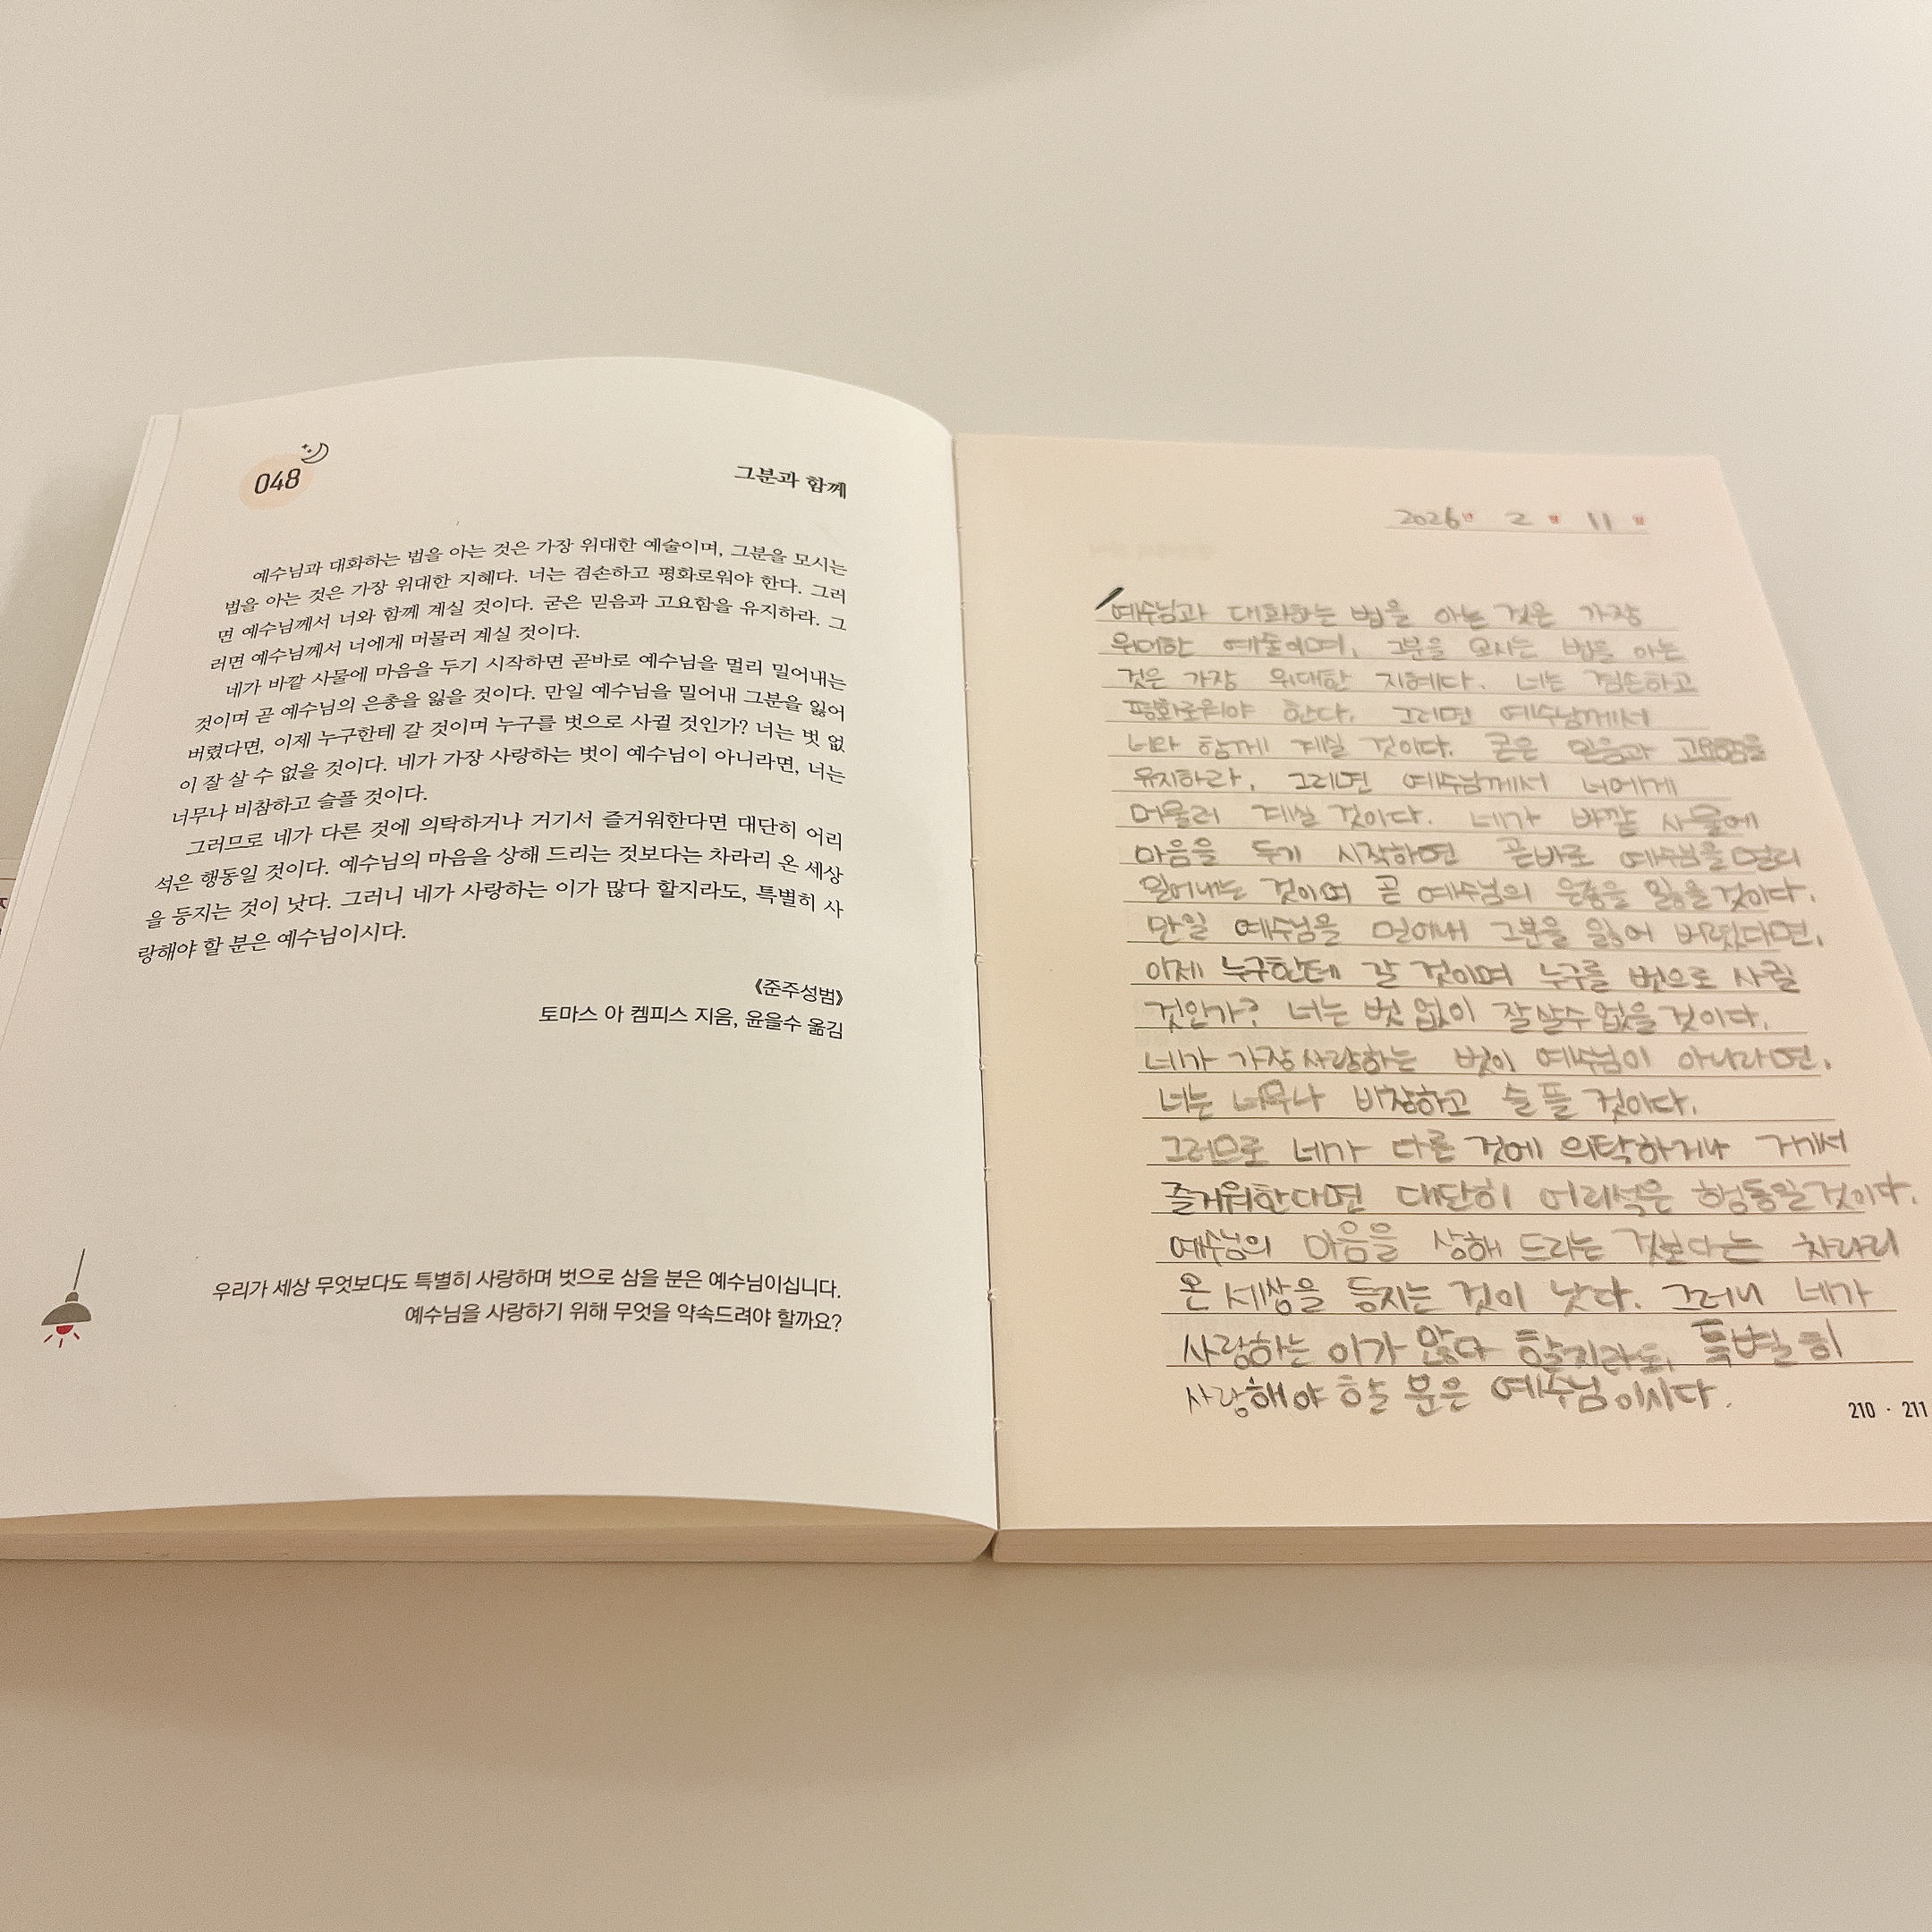 048
그분과 함께
예수님과 대화하는 법을 아는 것은 가장 위대한 예술이며, 그분을 모시는
법을 아는 것은 가장 위대한 지혜다. 너는 겸손하고 평화로워야 한다. 그러
면 예수님께서 너와 함께 계실 것이다. 굳은 믿음과 고요함을 유지하라. 그
러면 예수님께서 너에게 머물러 계실 것이다.
네가 바깥 사물에 마음을 두기 시작하면 곧바로 예수님을 멀리 밀어내는
것이며 곧 예수님의 은총을 잃을 것이다. 만일 예수님을 밀어내 그분을 잃어
버렸다면, 이제 누구한테 갈 것이며 누구를 벗으로 사귈 것인가? 너는 벗 없
이 잘 살 수 없을 것이다. 네가 가장 사랑하는 벗이 예수님이 아니라면, 너는
너무나 비참하고 슬플 것이다.
그러므로 네가 다른 것에 의탁하거나 거기서 즐거워한다면 대단히 어리
석은 행동일 것이다. 예수님의 마음을 상해 드리는 것보다는 차라리 온 세상
을 등지는 것이 낫다. 그러니 네가 사랑하는 이가 많다 할지라도, 특별히 사
랑해야 할 분은 예수님이시다.
《준주성범》
토마스 아 켐피스 지음, 윤을수 옮김
우리가 세상 무엇보다도 특별히 사랑하며 벗으로 삼을 분은 예수님이십니다.
예수님을 사랑하기 위해 무엇을 약속드려야 할까요?
2026년 2월 11일
예수님과 대화하는 법을 아는 것은 가장
위대한 예술이며, 그분을 모시는 법을 아는
것은 가장 위대한 지혜다. 너는 겸손하고
평화로워야 한다. 그러면 예수님께서
너와 함께 계실 것이다. 굳은 믿음과 고요함을
유지하라, 그러면 예수님께서 너에게
머물러 계실 것이다. 네가 바깥 사물에
마음을 두기 시작하면 곧바로 예수님을 멀리
밀어내는 것이며 곧 예수님의 은총을 잃을것이다.
만일 예수님을 밀어내 그분을 잃어 버렸다면,
이제 누구한테 갈 것이며 누구를 벗으로 사귈
것인가? 너는 벗 없이 잘살수 없을 것이다.
네가 가장 사랑하는 벗이 예수님이 아니라면,
너는 너무나 비참하고 슬플 것이다.
그러므로 네가 다른 것에 의탁하거나 거기서
즐거워한다면 대단히 어리석은 행동일것이다.
예수님의 마음을 상해 드리는 것보다는 차라리
온 세상을 등지는 것이 낫다. 그러니 네가
사랑하는 이가 많다 할지라도, 특별히
사랑해야 할 분은 예수님이시다.
210 · 211